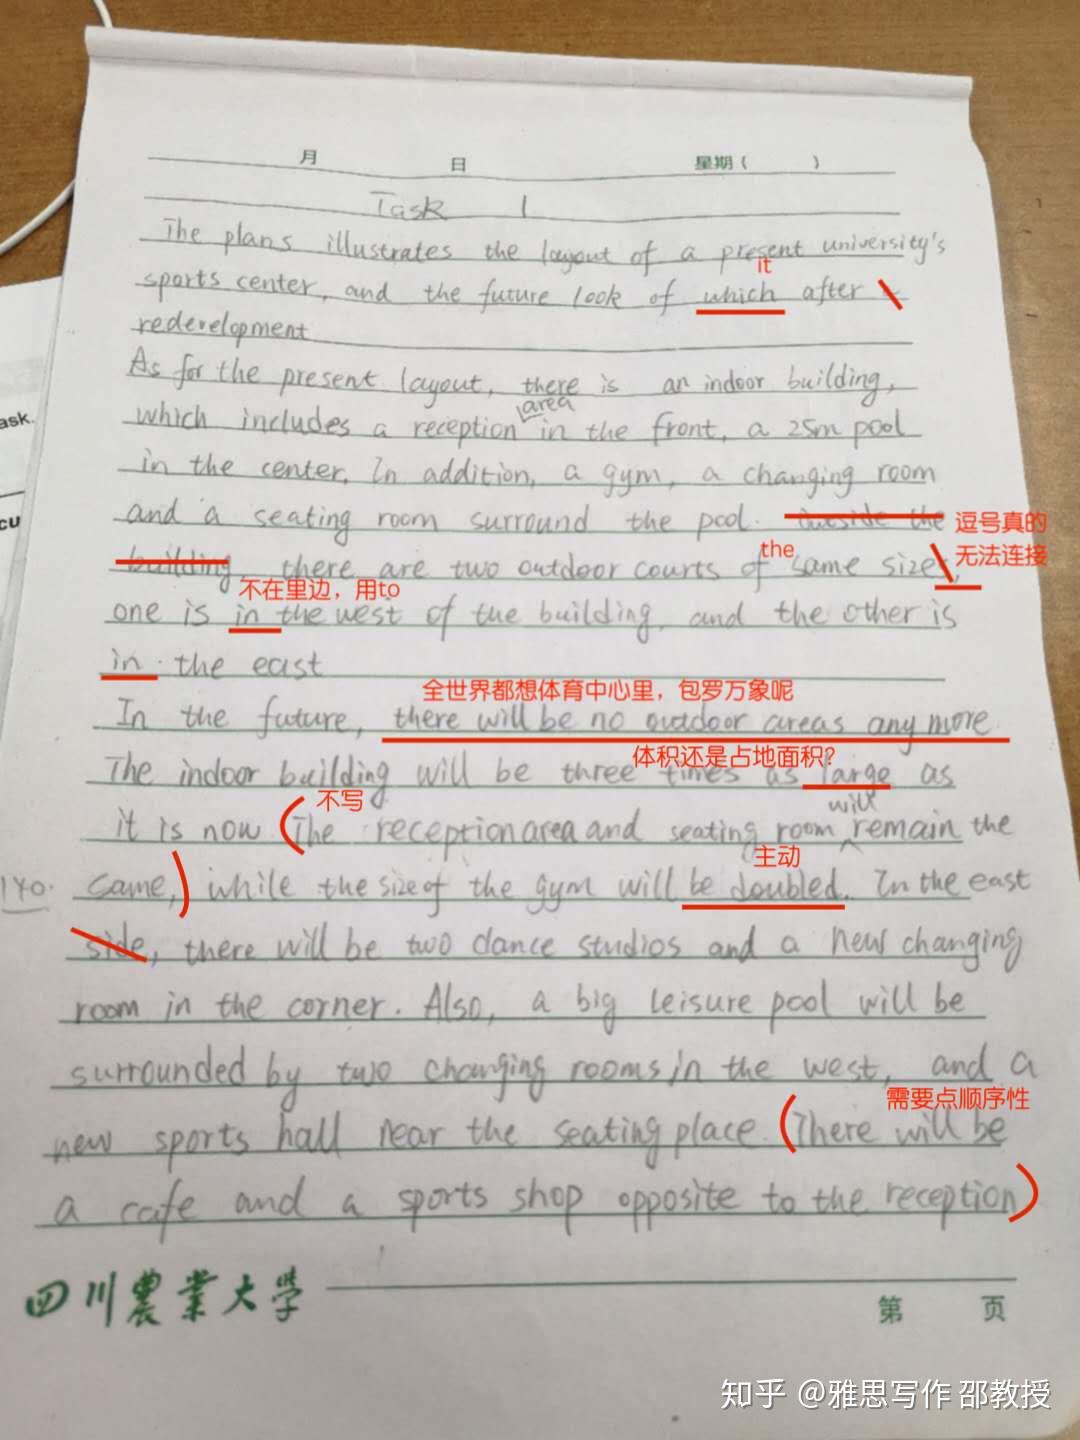 月 日 星期( )
Task 1
The plans illustrates the layout of a present university's
it
sports center, and the future look of which after
redevelopment
As for the present layout, there is an indoor building,
area
which includes a reception in the front, a 25m pool
in the center. In addition, a gym, a changing room
and a seating room surround the pool. Outside the
逗号真的
无法连接
the
building there are two outdoor courts of same sizes,
不在里边，用to
one is in the west of the building, and the other is
in the east
全世界都想体育中心里，包罗万象呢
In the future, there will be no outdoor areas any more
体积还是占地面积？
The indoor building will be three times as large as
不写
will
it is now The reception area and seating room remain the
主动
140.
same, while the size of the gym will be doubled. In the east
side, there will be two dance studios and a new changing
room in the corner. Also, a big leisure pool will be
surrounded by two changing rooms in the west, and a
需要点顺序性
new sports hall near the seating place There will be
a cafe and a sports shop opposite to the reception
四川農業大学
第 页
ask.
cu
知乎 @雅思写作 邵教授